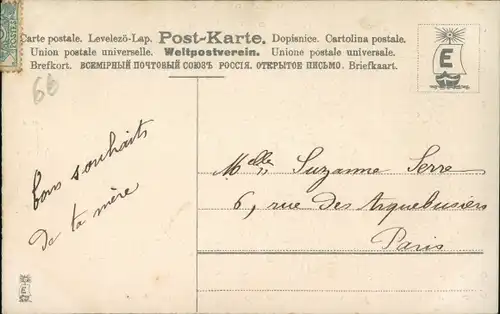 Carte postale. Levelező-Lap. Post-Karte. Dopisnice. Cartolina postale.
Union postale universelle. Weltpostverein. Unione postale universale.
Brefkort. ВСЕМІРНЫЙ ПОЧТОВЫЙ СОЮЗЪ РОССІЯ. ОТКРЫТОЕ ПИСЬМО. Briefkaart.
E
66
bons souhaits
de ta mère
Melle Suzanne Serre
6, rue des Arquebusiers
Paris